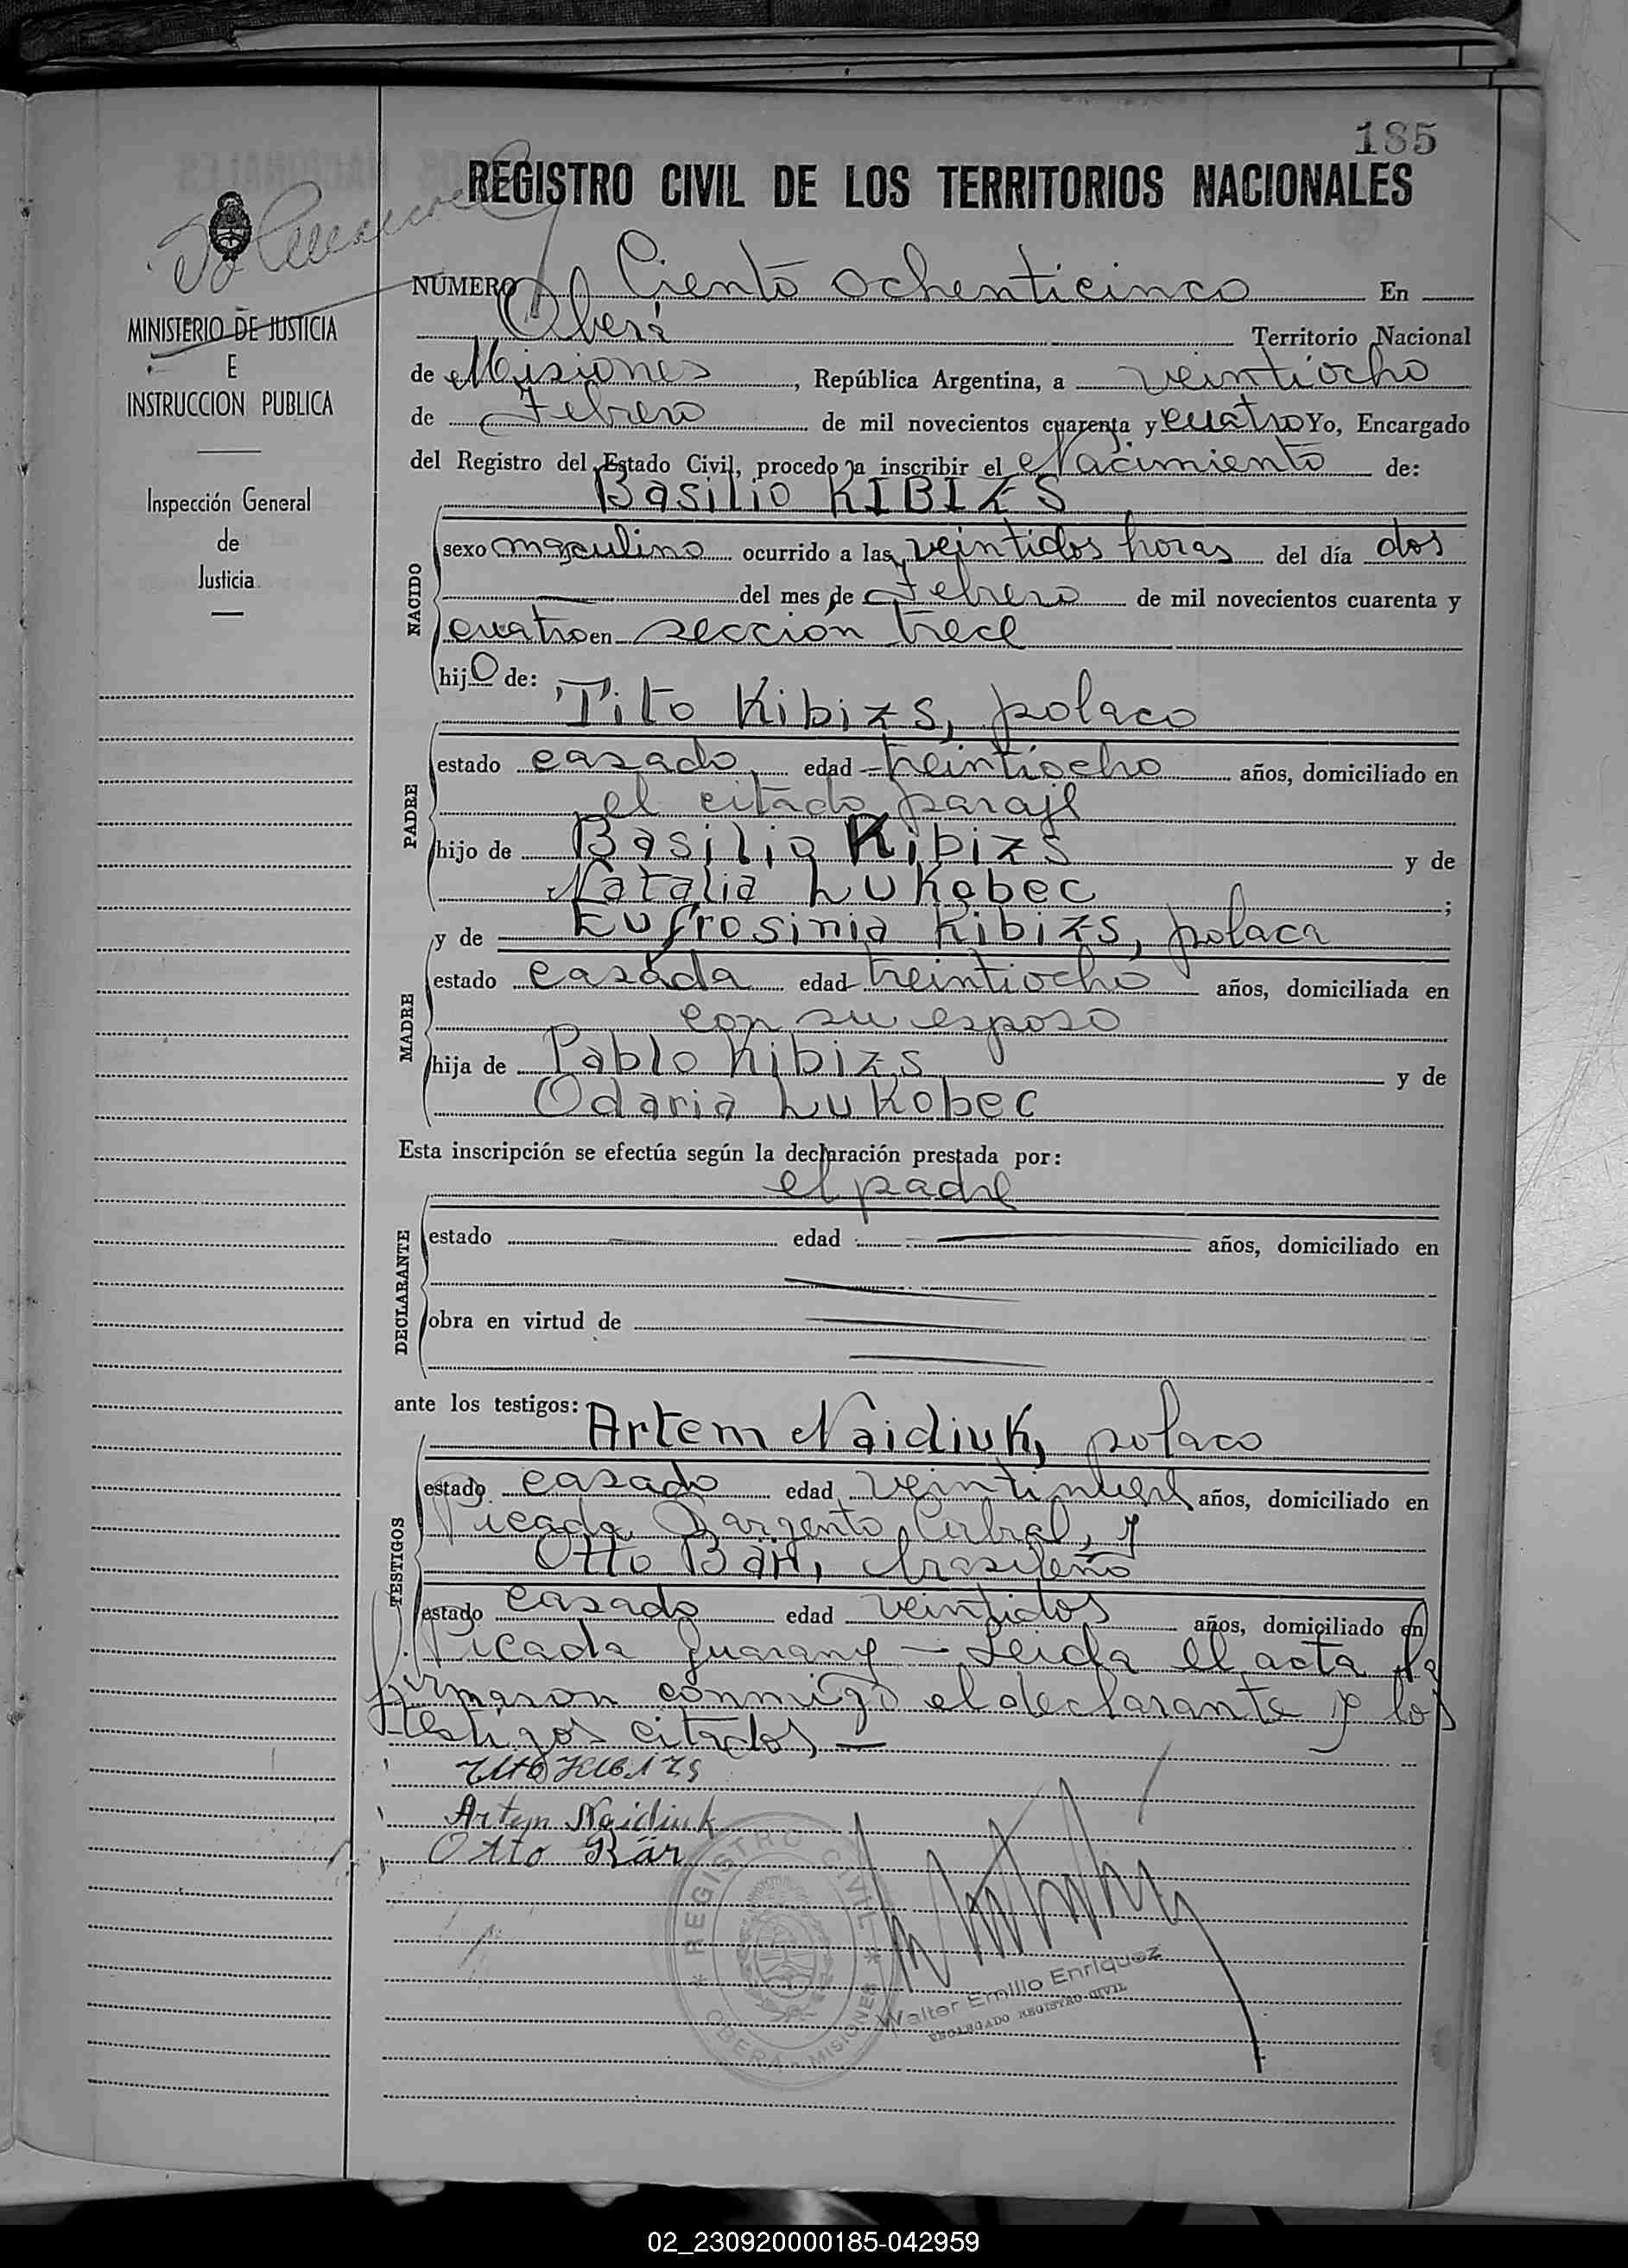 185
REGISTRO CIVIL DE LOS TERRITORIOS NACIONALES
MINISTERIO DE JUSTICIA
E
INSTRUCCION PUBLICA
Inspección General
de
Justicia
NÚMERO Ciento ochenticinco En
Oberá Territorio Nacional
de Misiones, República Argentina, a veintiocho
de Febrero de mil novecientos cuarenta y cuatro Yo, Encargado
del Registro del Estado Civil, procedo a inscribir el Nacimiento de:
Basilio KIBIZS
NACIDO
sexo masculino ocurrido a las veintidos horas del día dos
del mes de Febrero de mil novecientos cuarenta y
cuatro en seccion trece
hijo de:
Tito Kibizs, polaco
PADRE
estado casado, edad treintiocho años, domiciliado en
el citado paraje
hijo de Basilio Kibizs y de
Natalia Lukobec;
y de Eufrosinia Kibizs, polaca
MADRE
estado casada edad treintiocho años, domiciliada en
con su esposo
hija de Pablo Kibizs y de
Odaria Lukobec
Esta inscripción se efectúa según la declaración prestada por:
el padre
DECLARANTE
estado edad años, domiciliado en
obra en virtud de
ante los testigos: Artem Naidiuk, polaco
TESTIGOS
estado casado edad veintinueve años, domiciliado en
Picada Sargento Cabral, y
Otto Bär, brasileño
estado casado edad veintidos años, domiciliado en
Picada Guarany — Leida el acta la
firmaron conmigo el declarante y los
testigos citados —
Artem Naidiuk
Otto Bär
REGISTRO CIVIL
OBERA - MISIONES
Walter Emilio Enriquez
ENCARGADO REGISTRO CIVIL
02_230920000185-042959